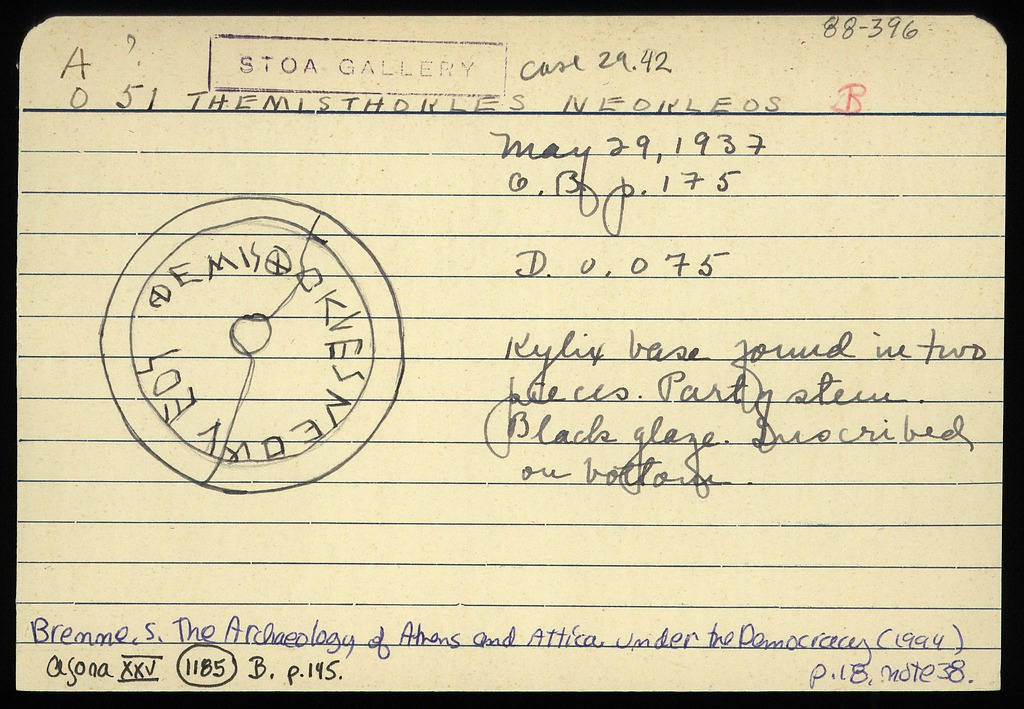 88-396
A ? STOA GALLERY case 29.42
O 51 THEMISTHOKLES NEOKLEOS B
May 29, 1937
O.B. p. 175
D. 0.075
Kylix base found in two
pieces. Part of stem.
Black glaze. Inscribed
on bottom.
Brenne, S. The Archaeology of Athens and Attica under the Democracy (1994)
p. 18, note 38.
Agora XXV 1185 B. p. 145.